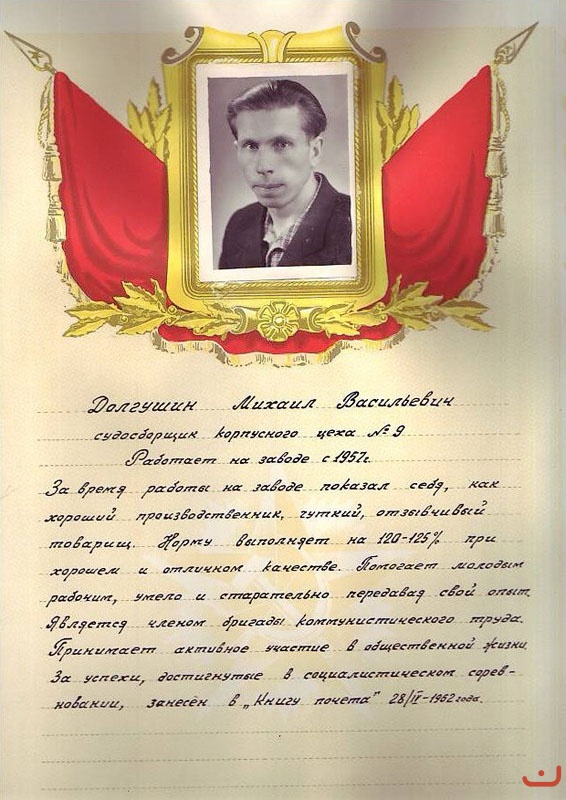 Долгушин Михаил Васильевич
судосборщик корпусного цеха № 9
Работает на заводе с 1957г.
За время работы на заводе показал себя, как
хороший производственник, чуткий, отзывчивый
товарищ. Норму выполняет на 120-125% при
хорошем и отличном качестве. Помогает молодым
рабочим, умело и старательно передавая свой опыт.
Является членом бригады коммунистического труда.
Принимает активное участие в общественной жизни.
За успехи, достигнутые в социалистическом сорев-
новании, занесён в „Книгу почета" 28/IV-1962 года.